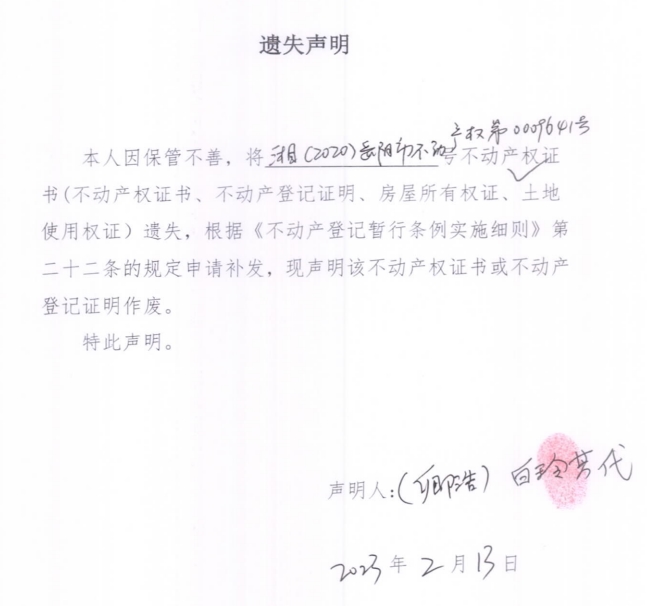 遗失声明
本人因保管不善，将湘(2020)岳阳市不动产权第0009641号号不动产权证
书(不动产权证书、不动产登记证明、房屋所有权证、土地
使用权证）遗失，根据《不动产登记暂行条例实施细则》第
二十二条的规定申请补发，现声明该不动产权证书或不动产
登记证明作废。
特此声明。
声明人：(卿浩) 白玲芳代
2023年2月13日